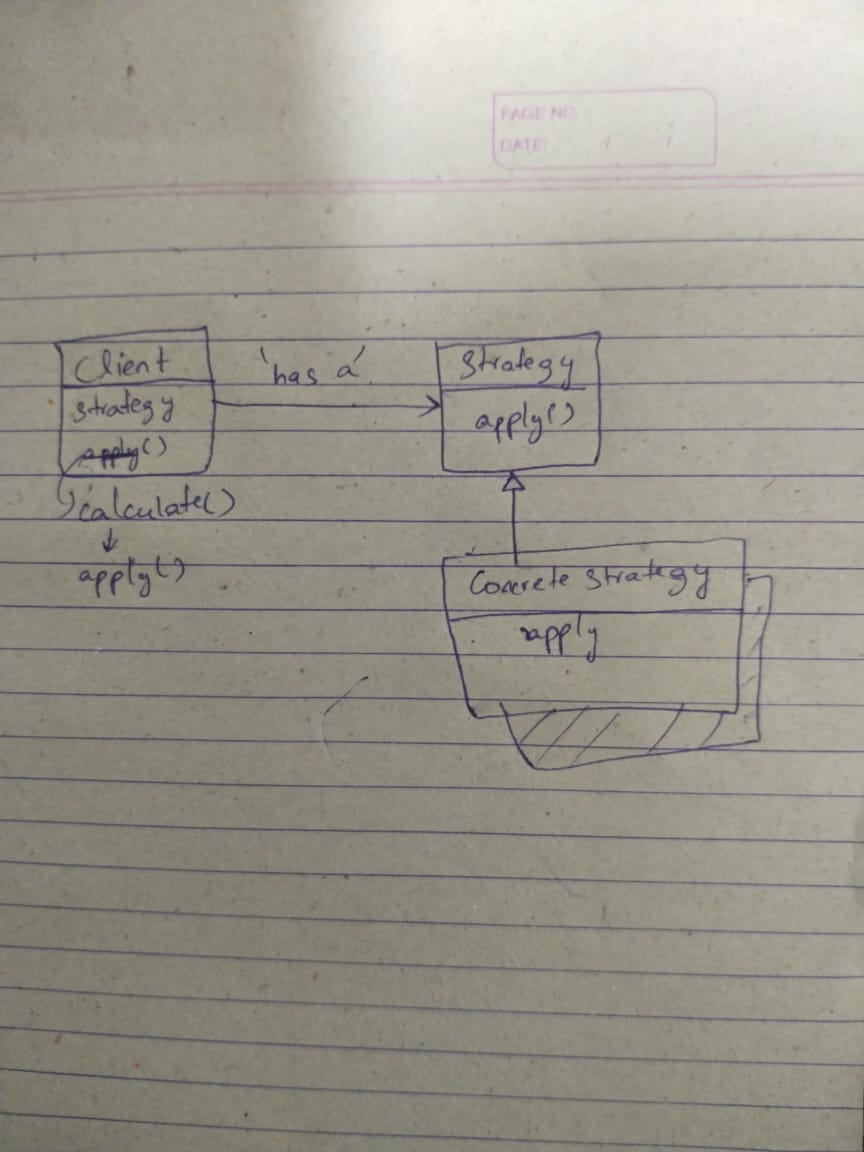 PAGE NO.
DATE: / /
Client
strategy
apply()
calculate()
↓
apply()
'has a'
Strategy
apply()
Concrete Strategy
apply